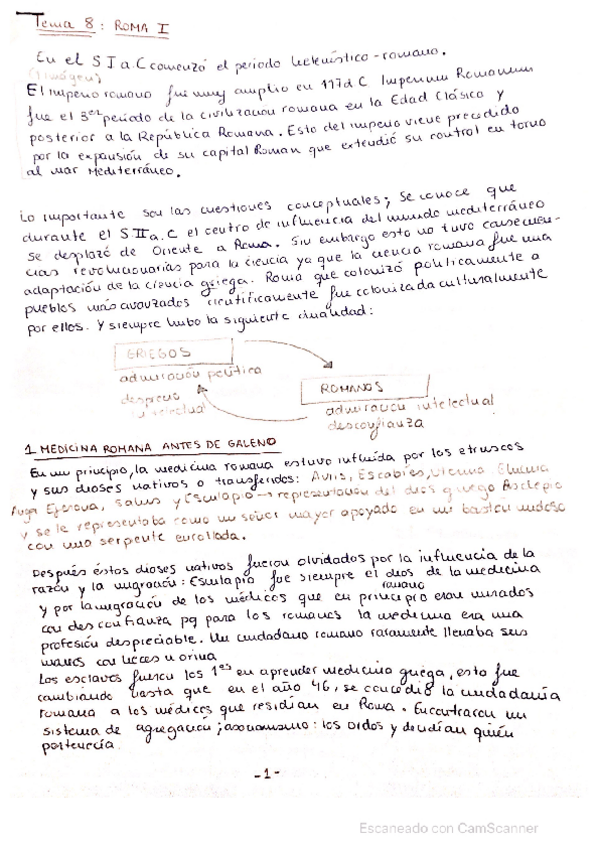 Tema 8: ROMA I
En el S I a.C comenzó el periodo helenístico-romano.
(imágen)
El imperio romano fue muy amplio en 117 d C Imperium Romanum
fue el 3er periodo de la civilización romana en la Edad Clásica y
posterior a la República Romana. Esto del imperio viene precedido
por la expansión de su capital Roman que extendió su control en torno
al mar Mediterráneo.
Lo importante son las cuestiones conceptuales; Se conoce que
durante el S II a.C el centro de influencia del mundo mediterráneo
se desplazó de Oriente a Roma. Sin embargo esto no tuvo consecuen-
cias revolucionarias para la ciencia ya que la ciencia romana fue una
adaptación de la ciencia griega. Roma que colonizó políticamente a
pueblos más avanzados científicamente fue colonizada culturalmente
por ellos. Y siempre hubo la siguiente dualidad:
GRIEGOS
admiración política
desprecio
intelectual
ROMANOS
admiración intelectual
desconfianza
1 MEDICINA ROMANA ANTES DE GALENO
En un principio, la medicina romana estuvo influída por los etruscos
y sus dioses nativos o transferidos: Avris, Escabies,
Salus y Esculapio → representación del dios griego Asclepio
y se le representaba como un señor mayor apoyado en un bastón nudoso
con una serpente enrollada.
Después éstos dioses nativos fueron olvidados por la influencia de la
razón y la migración: Esculapio fue siempre el dios de la medicina
romano
y por la migración de los médicos que en principio eran mirados
con desconfianza pq para los romanos la medicina era una
profesión despreciable. Un ciudadano romano raramente llenaba sus
manos con heces u orina
Los esclavos fueron los 1os en aprender medicina griega, esto fue
cambiando hasta que en el año 46, se concedió la ciudadanía
romana a los médicos que residían en Roma. Encontraron un
sistema de agregación; asonamismo: los oidos y decidían quién
pertenecía.
-1-
Escaneado con CamScanner